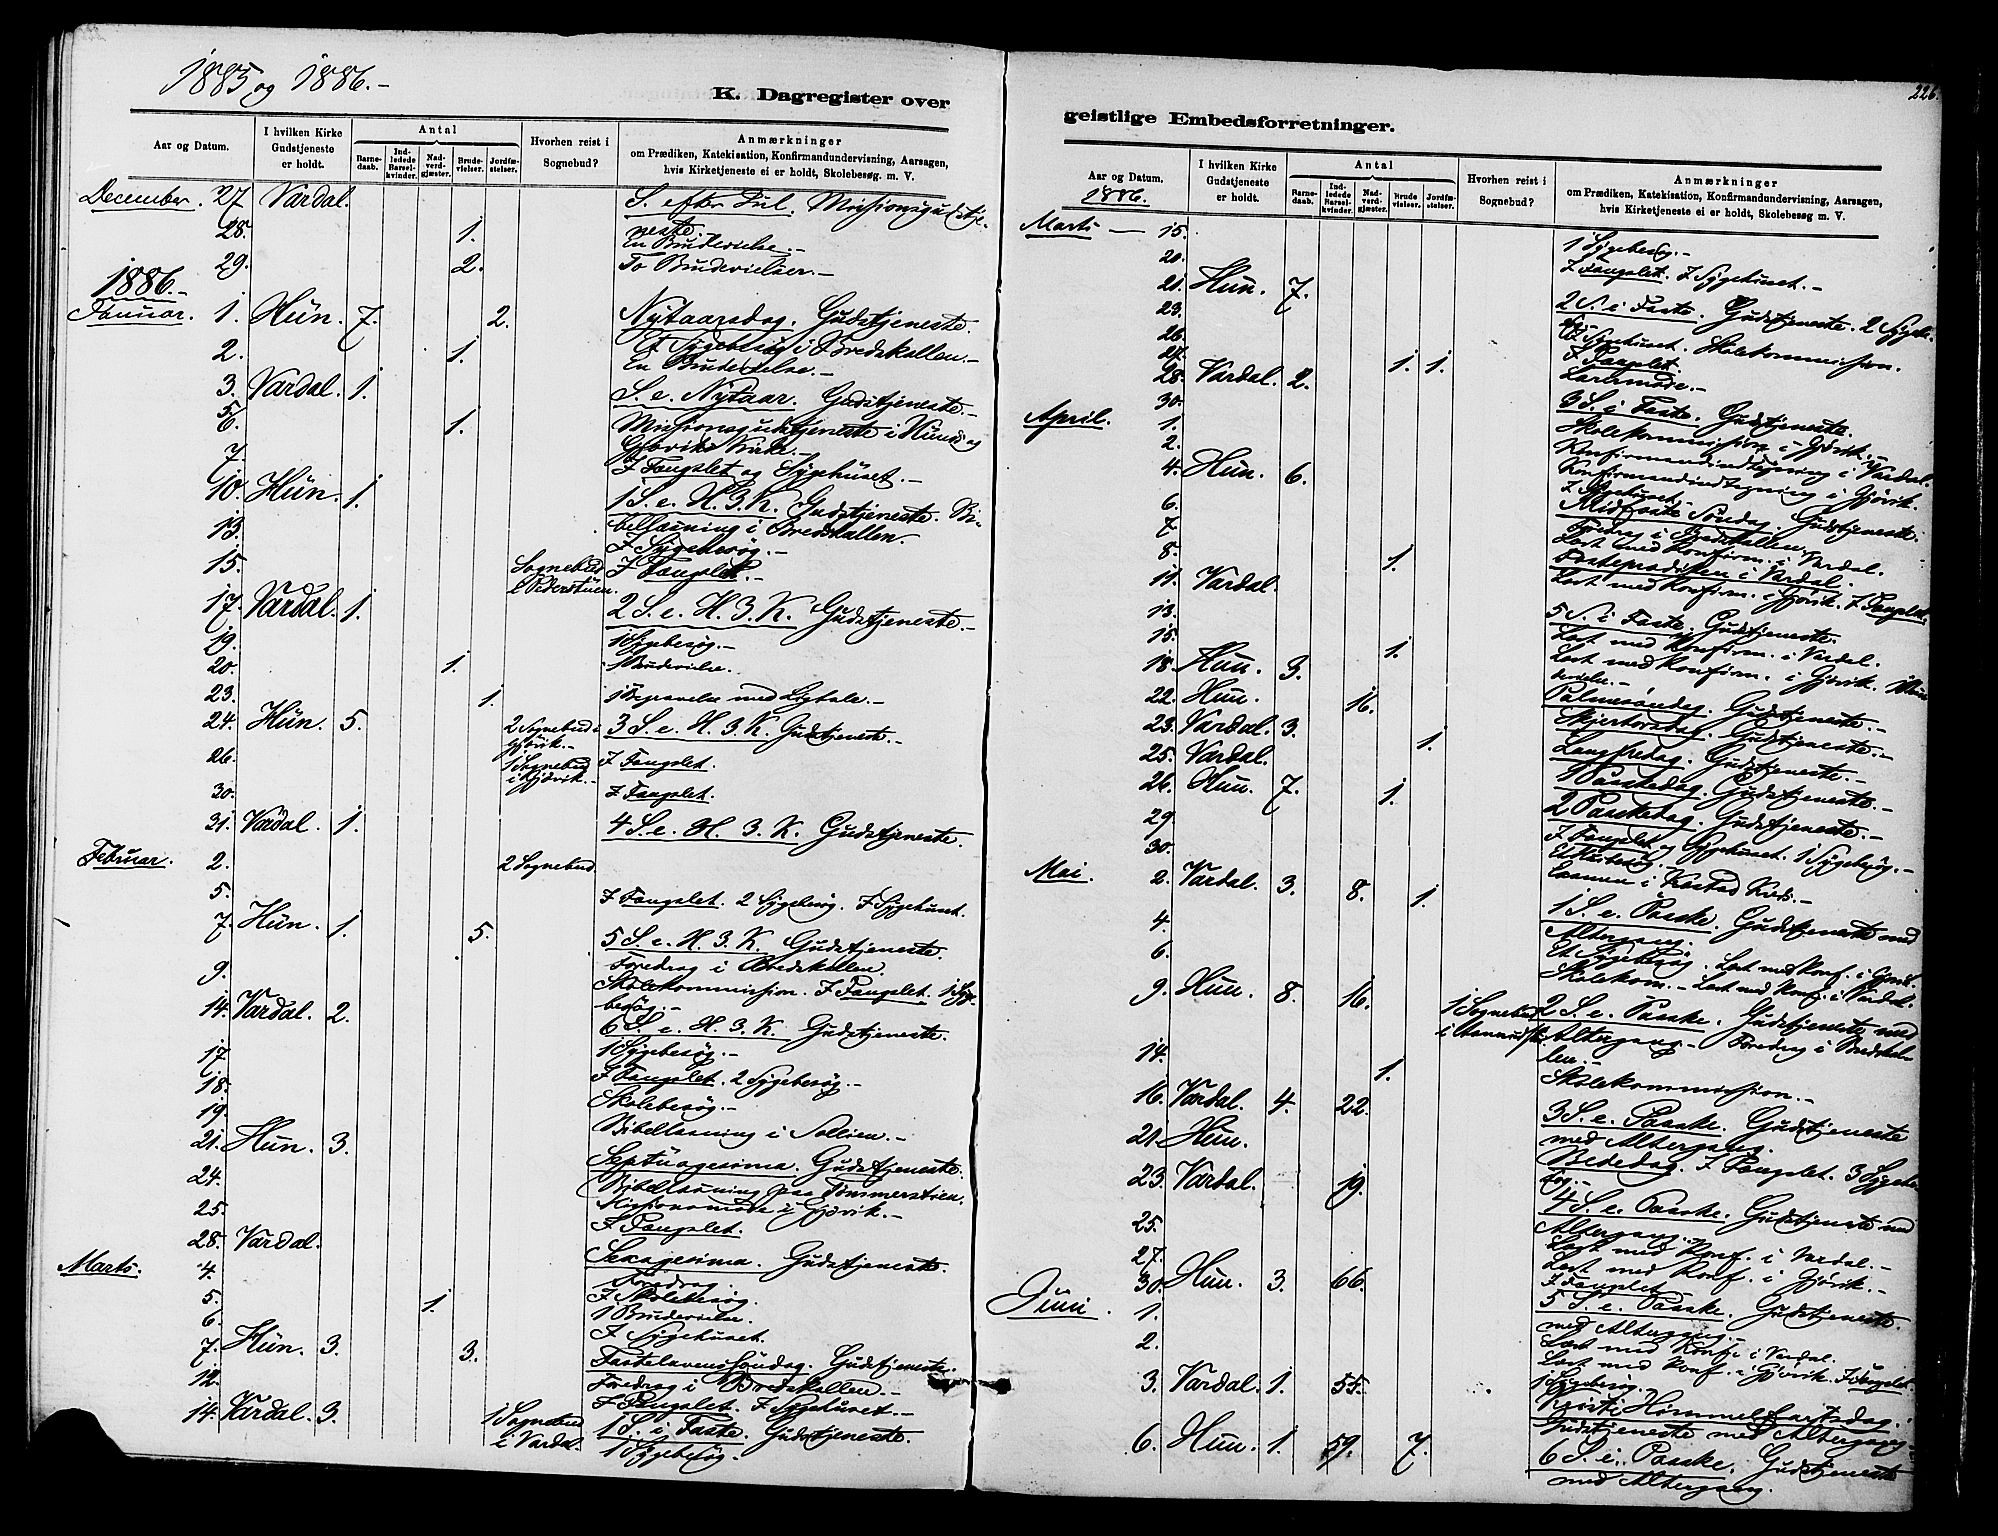 1885 og 1886.-
K. Dagregister over
Aar og Datum.
I hvilken Kirke Gudstjeneste er holdt.
Antal
Barne-daab.
Ind-ledede Barsel-kvinder.
Nad-verd-gjæster.
Brude-vielser.
Jordfæ-stelser.
Hvorhen reist i Sognebud?
Anmærkninger
om Prædiken, Katekisation, Konfirmandundervisning, Aarsagen,
hvis Kirketjeneste ei er holdt, Skolebesøg m. V.
December. 27. Vardal. S. efter Jul. Missionsgudstje-
neste.
28. 1. En Brudevielse.-
29. 2. To Brudevielser.-
1886.-
Januar. 1. Hun. 7. 2. Nytaarsdag. Gudstjeneste.
Et Sygebesøg i Bredskallen.-
2. 1. En Brudevielse.-
3. Vardal. 1. S. e. Nytaar. Gudstjeneste.-
1. Missionsgudstjeneste i Hunds og
Gjøviks Kirke.-
7. I Fængslet og Sygehuset.-
10. Hun. 1. 1 S. e. H. 3. K. Gudstjeneste. Bi-
bellæsning i Bredskallen.
13. I Sygebesøg.-
15. Sognebud I Fængslet.-
17. Vardal. 1. 2 S. e. H. 3. K. Gudstjeneste.-
19. 1 Sygebesøg.-
20. 1. 1 Brudevielse.
23. 1. 1 Begravelse med Ligtale.-
24. Hun. 5. 2 Sognebud i Gjøvik.- 3 S. e. H. 3. K. Gudstjeneste.-
26. 1 Sognebud i Gjøvik.- I Fængslet.
30. I Fængslet.
31. Vardal. 1. 4 S. e. H. 3. K. Gudstjeneste.
Februar. 2. 2 Sognebud.
5. I Fængslet. 2 Sygebesøg. I Sygehuset.
7. Hun. 1. 5. 5 S. e. H. 3. K. Gudstjeneste.
Foredrag i Bredskallen.
9. Skolekommission. I Fængslet. 1 Syge-
besøg.-
14. Vardal. 2. 6 S. e. H. 3. K. Gudstjeneste.
17. 1 Sygebesøg.-
18. I Fængslet. 2 Sygebesøg.-
19. Skolebesøg.-
Bibellæsning i Sollien.-
21. Hun. 3. Septuagesima. Gudstjeneste.
24. Bibellæsning paa Tømmerstuen.
25. Missionsmøde i Gjøvik.-
I Fængslet.
28. Vardal. Sexagesima. Gudstjeneste.
Marts. 4. Foredrag.
5. 1. I Skolebesøg.
6. 1 Brudevielse.
I Sygehuset.
7. Hun. 3. 3. Fastelavenssøndag. Gudstjeneste.
Foredrag i Bredskallen.-
12. I Fængslet. I Sygehuset.-
14. Vardal. 3. 1 Sognebud i Vardal. 1 S. i Faste. Gudstjeneste.
1 Sygebesøg.-
226.
geistlige Embedsforretninger.
Aar og Datum.
1886.
I hvilken Kirke Gudstjeneste er holdt.
Antal
Barne-daab.
Ind-ledede Barsel-kvinder.
Nad-verd-gjæster.
Brude-vielser.
Jordfæ-stelser.
Hvorhen reist i Sognebud?
Anmærkninger
om Prædiken, Katekisation, Konfirmandundervisning, Aarsagen,
hvis Kirketjeneste ei er holdt, Skolebesøg m. V.
Marts — 15. 1 Sygebesøg.-
20. I Fængslet. I Sygehuset.-
21. Hun. 7. 2 S. i Faste. Gudstjeneste. 2 Syge-
23. I Sygehuset. Skolekommission.
26. I Fængslet.
27. 1. 1. Lærermøde.-
28. Vardal. 2. 3 S. i Faste. Gudstjeneste.
30. Skolekommission i Gjøvik.-
April. 1. Konfirmandindtegning i Vardal.
2. Konfirmandindtegning i Gjøvik.
I Sygehuset.
4. Hun. 6. Midfaste Søndag. Gudstjeneste.
Foredrag i Bredskallen.
6. Læst med Konfirm. i Vardal.
7. Fasteprædiken i Vardal.
8. 1. Læst med Konfirm. i Gjøvik. I Fængslet.
11. Vardal. 5 S. i Faste. Gudstjeneste.
13. Læst med Konfirm. i Vardal.
15. 1. Læst med Konfirm. i Gjøvik.
18. Hun. 3. Palmesøndag. Gudstjeneste.-
22. Hun. 16. Skjertorsdag. Gudstjeneste.-
23. Vardal. 3. Langfredag. Gudstjeneste.-
25. Vardal. 1. 1 Paaskedag. Gudstjeneste.-
26. Hun. 7. 1. 2 Paaskedag. Gudstjeneste.-
29 I Fængslet og Sygehuset. 1 Sygebesøg.-
30.
Mai. 2. Vardal. 3. 8. 1. 1 S. e. Paaske. Gudstjeneste med
Altergang.
4. Et Sygebesøg. Læst med Konf. i Gjøvik.
6. Skolekom.- Læst med Konf. i Vardal.
9. Hun. 8. 16. 1 Sognebud 2 S. e. Paaske. Gudstjeneste med
Altergang.- Foredrag i Bredskal-
len.-
14. 1. Skolekommission.-
16. Vardal. 4. 22. 3 S. e. Paaske. Gudstjeneste
med Altergang.
21. Hun. Bededag. I Fængslet. 3 Sygebe-
søg.-
23. Vardal. 19. 4 S. e. Paaske. Gudstjeneste med
Altergang.
25. Læst med Konf. i Vardal.-
27. Læst med Konf. i Gjøvik.-
I Fængslet.
30. Hun. 3. 66. 5 S. e. Paaske. Gudstjeneste
med Altergang.-
Juni. 1. Læst med Konf. i Vardal.
2. Læst med Konf. i Gjøvik. I Fængslet.
1 Sygebesøg.
3. Vardal. 1. 55. Kristi Himmelfartsdag.
Gudstjeneste med Altergang.-
6. Hun. 1. 59. 7. 6 S. e. Paaske. Gudstjeneste
med Altergang.